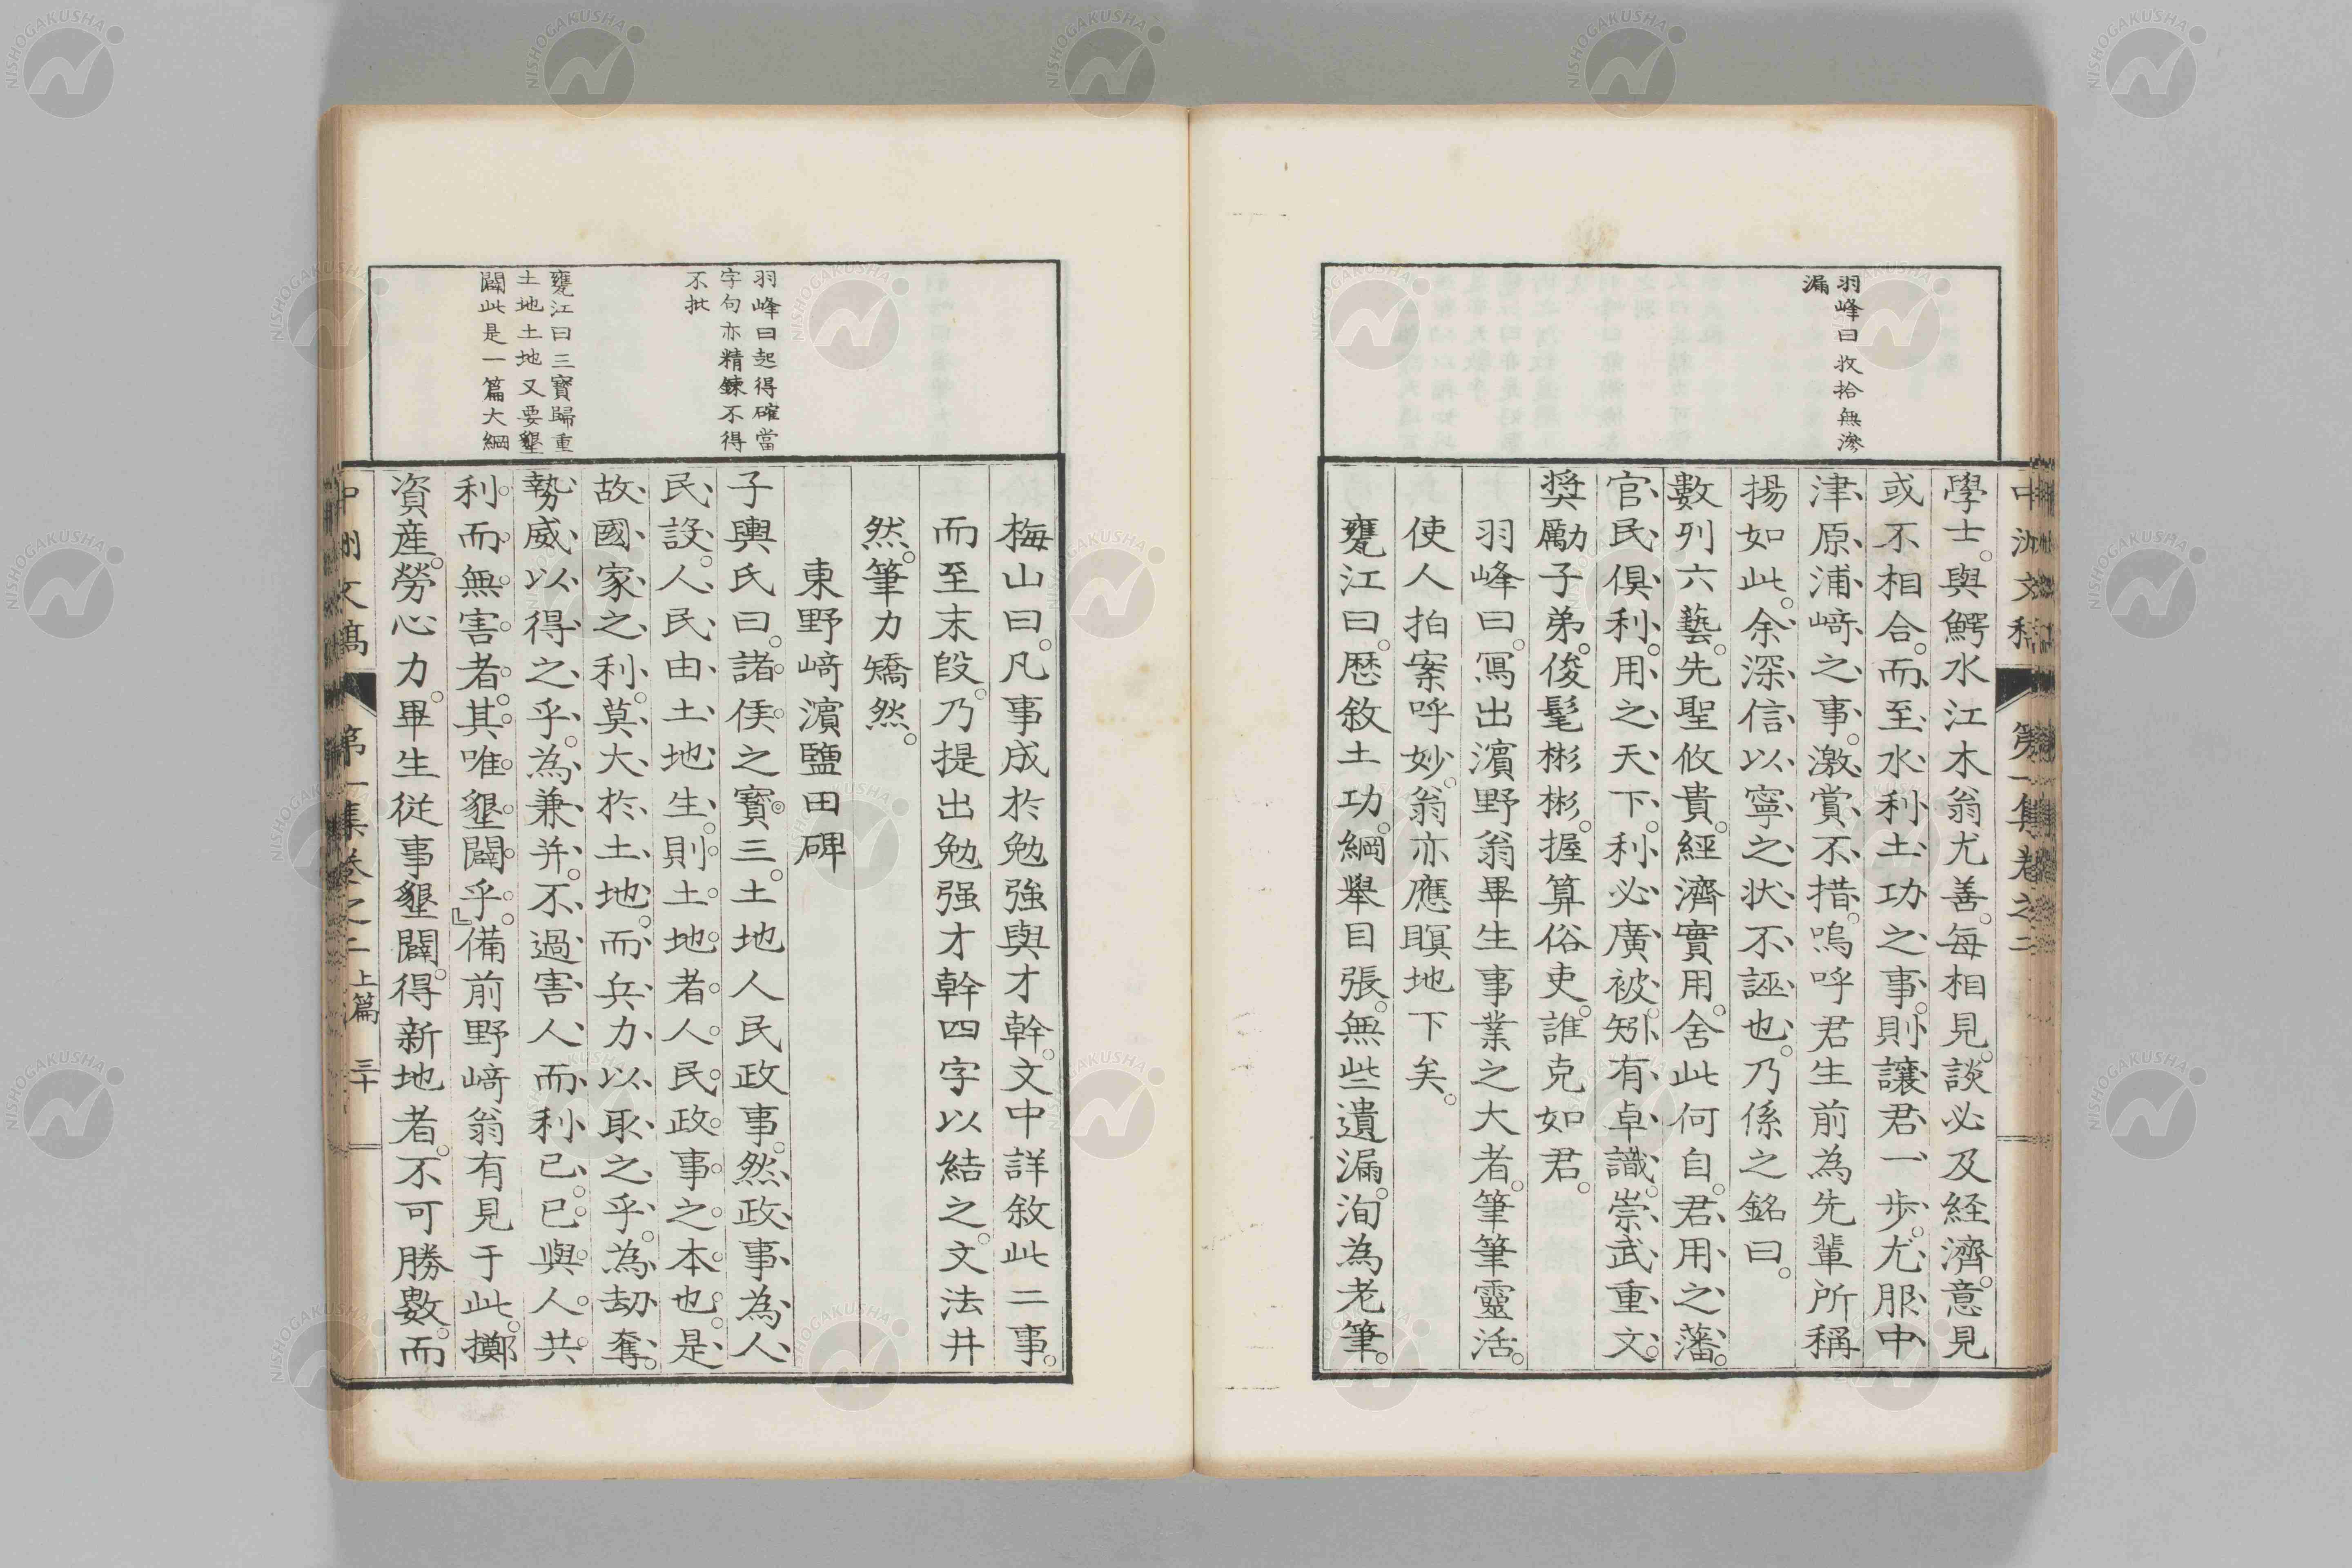 羽峰曰收拾無滲
漏
學士。與鰐水江木翁尤善。每相見。談必及経濟。意見
或不相合。而至水利土功之事。則讓君一步。尤服中
津原浦﨑之事。激賞不措。嗚呼君生前為先輩所稱
揚如此。余深信以寧之状不誣也。乃係之銘曰。
數列六藝。先聖攸貴。經濟實用。舍此何自。君用之藩。
官民俱利。用之天下。利必廣被。矧有卓識。崇武重文。
奨勵子弟。俊髦彬彬。握算俗吏。誰克如君。
羽峰曰。寫出濵野翁畢生事業之大者。筆筆靈活。
使人拍案呼妙。翁亦應瞑地下矣。
甕江曰。歴敘土功。綱舉目張。無些遺漏。洵為老筆。
羽峰曰起得確當
字句亦精鍊不得
不批
甕江曰三寶歸重
土地土地又要墾
闢此是一篇大綱
梅山曰。凡事成於勉強與才幹。文中詳敘此二事。
而至末段。乃提出勉强才幹四字以結之。文法井
然。筆力矯然。
東野﨑濵鹽田碑
子輿氏曰。諸侯之寶三。土地人民政事。然政事為人
民設。人民由土地生。則土地者。人民政事之本也。是
故國家之利。莫大於土地。而兵力以取之乎。為劫奪。
勢威以得之乎。為兼并。不過害人而利己。已與人共
利而無害者。其唯墾闢乎。』備前野﨑翁有見于此。擲
資産。勞心力。畢生従事墾闢。得新地者。不可勝數。而
中洲文稿 第一集卷之二 上篇 三十